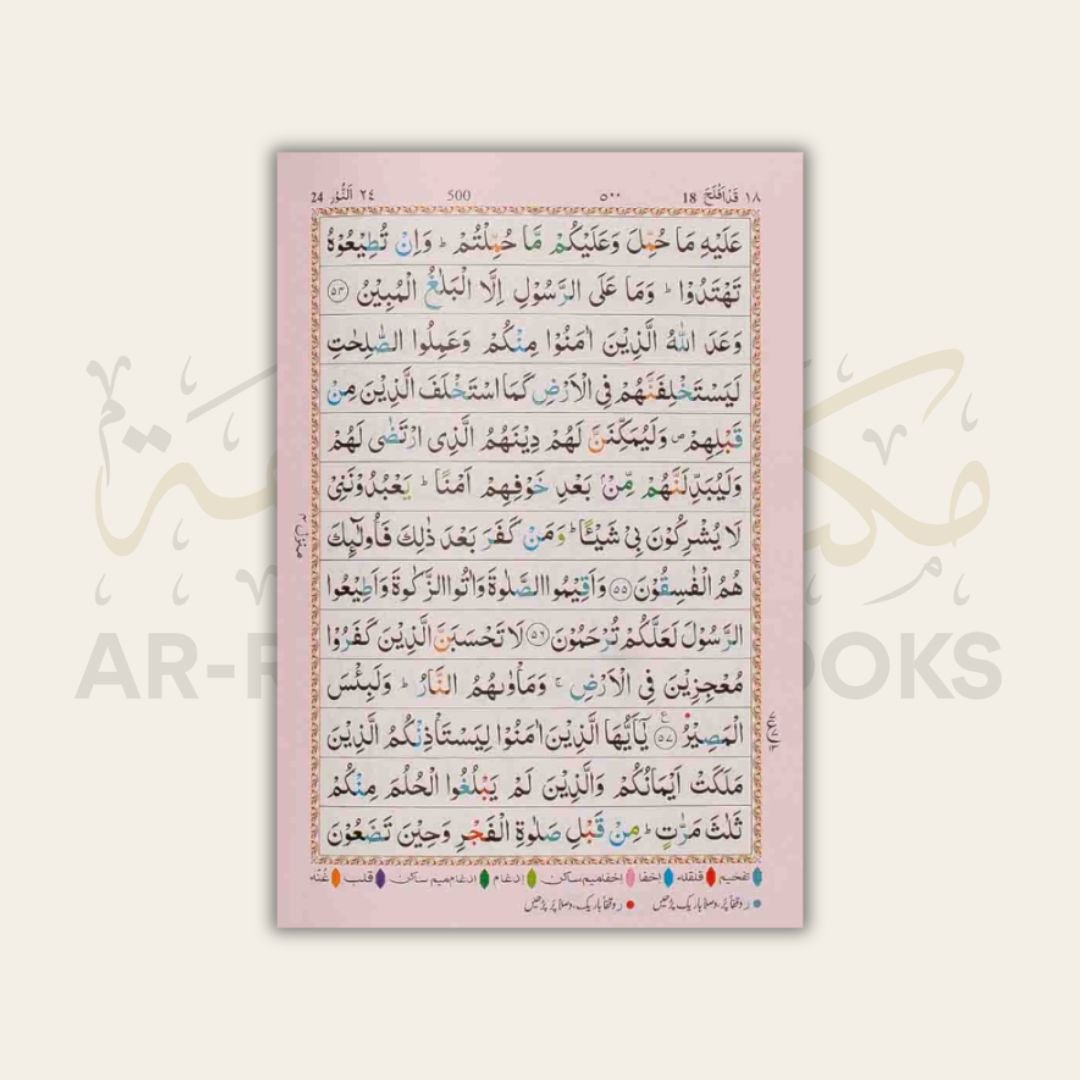 ١٨ قَدْاَفْلَحَ 18 ٥٠٠ 500 ٢٤ اَلنُّوْر 24
عَلَيْهِ مَا حُمِّلَ وَعَلَيْكُمْ مَّا حُمِّلْتُمْ ؕ وَاِنْ تُطِيْعُوْهُ
تَهْتَدُوْا ؕ وَمَا عَلَى الرَّسُوْلِ اِلَّا الْبَلٰغُ الْمُبِيْنُ ﴿٥٤﴾
وَعَدَ اللّٰهُ الَّذِيْنَ اٰمَنُوْا مِنْكُمْ وَعَمِلُوا الصّٰلِحٰتِ
لَيَسْتَخْلِفَنَّهُمْ فِى الْاَرْضِ كَمَا اسْتَخْلَفَ الَّذِيْنَ مِنْ
قَبْلِهِمْ ۪ وَلَيُمَكِّنَنَّ لَهُمْ دِيْنَهُمُ الَّذِى ارْتَضٰى لَهُمْ
وَلَيُبَدِّلَنَّهُمْ مِّنْۢ بَعْدِ خَوْفِهِمْ اَمْنًا ؕ يَعْبُدُوْنَنِىْ
لَا يُشْرِكُوْنَ بِىْ شَيْـًٔا ؕ وَمَنْ كَفَرَ بَعْدَ ذٰلِكَ فَاُولٰٓئِكَ
هُمُ الْفٰسِقُوْنَ ﴿٥٥﴾ وَاَقِيْمُوا الصَّلٰوةَ وَاٰتُوا الزَّكٰوةَ وَاَطِيْعُوا
الرَّسُوْلَ لَعَلَّكُمْ تُرْحَمُوْنَ ﴿٥٦﴾ لَا تَحْسَبَنَّ الَّذِيْنَ كَفَرُوْا
مُعْجِزِيْنَ فِى الْاَرْضِ ۚ وَمَاْوٰىهُمُ النَّارُ ؕ وَلَبِئْسَ
الْمَصِيْرُ ﴿٥٧﴾ ع يٰۤاَيُّهَا الَّذِيْنَ اٰمَنُوْا لِيَسْتَاْذِنْكُمُ الَّذِيْنَ
مَلَكَتْ اَيْمَانُكُمْ وَالَّذِيْنَ لَمْ يَبْلُغُوا الْحُلُمَ مِنْكُمْ
ثَلٰثَ مَرّٰتٍ ؕ مِنْ قَبْلِ صَلٰوةِ الْفَجْرِ وَحِيْنَ تَضَعُوْنَ
منزل ٤
تفخیم قلقلہ اخفا اخفامیم ساکن ادغام ادغام میم ساکن قلب غنّہ
ر وقفاً پُر، وصلاً باریک پڑھیں ر وقفاً باریک، وصلاً پُر پڑھیں